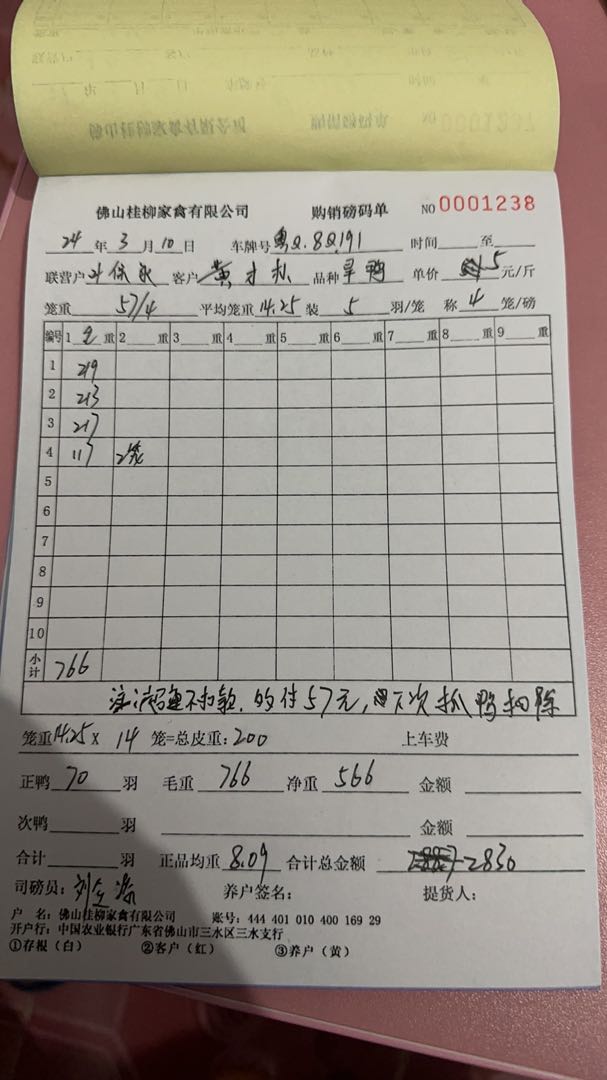 佛山桂柳家禽有限公司 购销磅码单 NO 0001238
24 年 3 月 10 日 车牌号 粤Q.8Q191 时间 至
联营户 客户 黄 品种 旱鸭 单价 5 元/斤
笼重 57/4 平均笼重 14.25 装 5 羽/笼 称 4 笼/磅
编号 1 重 2 重 3 重 4 重 5 重 6 重 7 重 8 重 9 重
1 219
2 213
3 217
4 117 2笼
5
6
7
8
9
10
小计 766
不扣款, 付57元, 下次抓鸭扣除
笼重 14.25 x 14 笼=总皮重: 200 上车费
正鸭 70 羽 毛重 766 净重 566 金额
次鸭 羽 金额
合计 羽 正品均重 8.09 合计总金额 2830
司磅员: 刘 养户签名: 提货人:
户 名: 佛山桂柳家禽有限公司 账号: 444 401 010 400 169 29
开户行: 中国农业银行广东省佛山市三水区三水支行
①存根（白） ②客户（红） ③养户（黄）